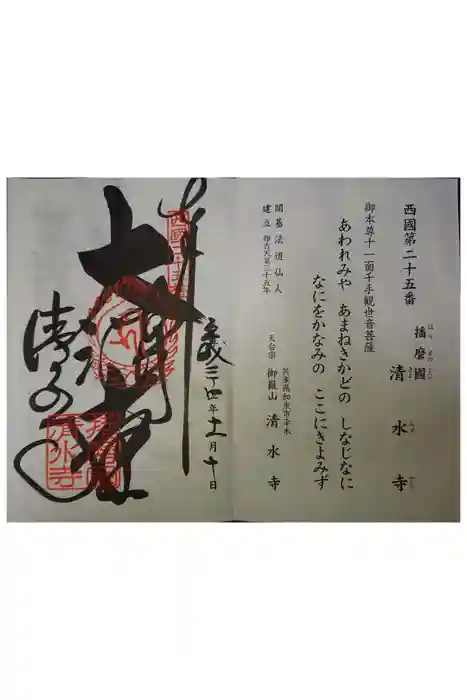 西國第二十五番
播磨國 清水寺
はりまのこく きよみずでら
御本尊十一面千手観世音菩薩
あわれみや あまねきかどの しなじなに
なにをかなみの ここにきよみず
開基 法道仙人
建立 推古天皇三十五年
兵庫県加東市平木
天台宗 御嶽山 清水寺
奉拝
大悲殿
清水寺
年十一月十日